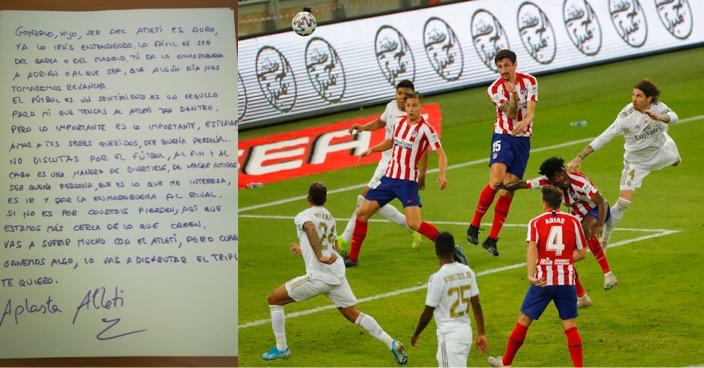 GONZALO, HIJO, SER DEL ATLETI ES DURO,
YA LO IRÁS ENTENDIENDO. LO FÁCIL ES SER
DEL BARÇA O DEL MADRID. TÚ DA LA ENHORABUENA
A ADRIÁN O AL QUE SEA, QUE ALGÚN DÍA NOS
TOMAREMOS REVANCHA.
EL FÚTBOL ES UN SENTIMIENTO ES UN ORGULLO
PARA MÍ QUE TENGAS AL ATLETI TAN DENTRO.
PERO LO IMPORTANTE ES LO IMPORTANTE, ESTUDIAR
AMAR A TUS SERES QUERIDOS, SER BUENA PERSONA..
NO DISCUTAS POR EL FÚTBOL, AL FIN Y AL
CABO ES UNA MANERA DE DIVERTIRSE, DE HACER AMIGOS
SER BUENA PERSONA, QUE ES LO QUE ME INTERESA,
ES IR Y DAR LA ENHORABUENA AL RIVAL.
SI NO ES POR COURTOIS PIERDEN, ASÍ QUE
ESTAMOS MÁS CERCA DE LO QUE CREEN.
VAS A SUFRIR MUCHO CON EL ATLETI, PERO CUAN
GANEMOS ALGO, LO VAS A DISFRUTAR EL TRIPL
TE QUIERO.
Aplasta Atleti
EFA
15
4
ARIAS
4
25